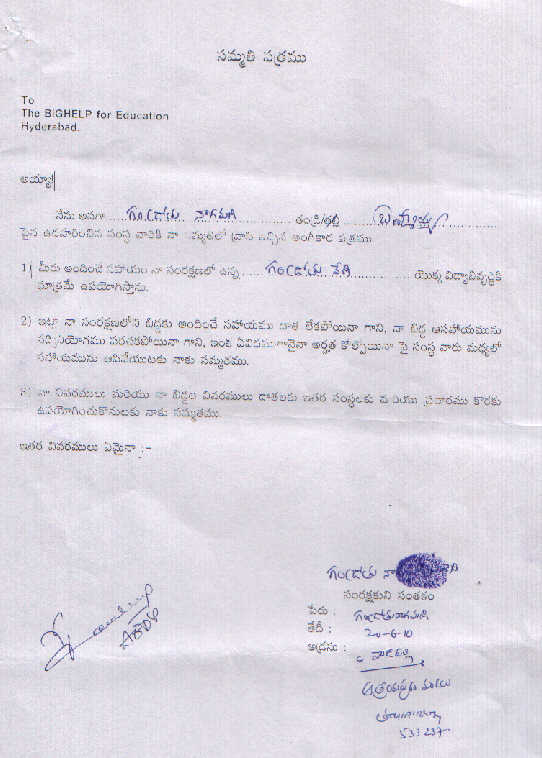 సమ్మతి పత్రము
To
The BIGHELP for Education
Hyderabad.
అయ్యా!
నేను అనగా గండ్రోతు నాగమణి తండ్రి/భర్త
పైన ఉదహరించిన సంస్థ వారికి నా సమ్మతితో వ్రాసి ఇచ్చిన అంగీకార పత్రము
1) మీరు అందించే సహాయం నా సంరక్షణలో ఉన్న యొక్క విద్యాభివృద్ధికి
మాత్రమే ఉపయోగిస్తాను.
2) ఇట్లా నా సంరక్షణలోని బిడ్డకు అందించే సహాయము దాత లేకపోయినా గాని, నా బిడ్డ ఆసహాయమును
సద్వినియోగము పరచకపోయినా గాని, ఇంక ఏవిధముగానైనా అర్హత కోల్పోయినా పై సంస్థ వారు మధ్యలో
సహాయమును ఆపివేయుటకు నాకు సమ్మతము.
3) నా వివరములు మరియు నా బిడ్డల వివరములు దాతలకు ఇతర సంస్థలకు మరియు ప్రచారము కొరకు
ఉపయోగించుకొనుటకు నాకు సమ్మతము.
ఇతర వివరములు ఏమైనా :-
సంరక్షకుని సంతకం
పేరు : నాగమణి
తేదీ : 20-6-10
అడ్రసు :
533237